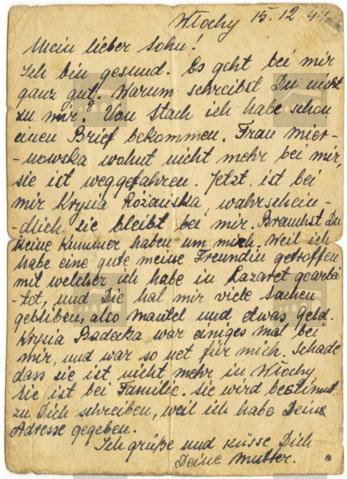 Włochy 15.12.44
Mein lieber Sohn!
Ich bin gesund. Es geht bei mir
ganz gut. Warum schreibst Du nicht
zu mir? Von Stach ich habe schon
einen Brief bekommen. Frau Mier-
-nowska wohnt nicht mehr bei mir,
sie ist weggefahren. Jetzt, ist bei
mir Krysia Różańska, wahrschein-
-dlich sie bleibt bei mir. Brauchst Du
keine Kummer haben um mich. Weil ich
habe eine gute meine Freundin getroffen
mit welcher ich habe in Lazaret gearbei-
tot, und Die hat mir viele Sachen
gebliben, also Mantel und etwas geld.
Krysia Badecka war einiges mal bei
mir, und war so net für mich. Schade
dass sie ist nicht mehr in Włochy
Sie ist bei Familie. Sie wird bestimmt
zu Dich schreiben, weil ich habe Deine
Adresse gegeben.
Ich grüße und küsse Dich
Deine Mutter.